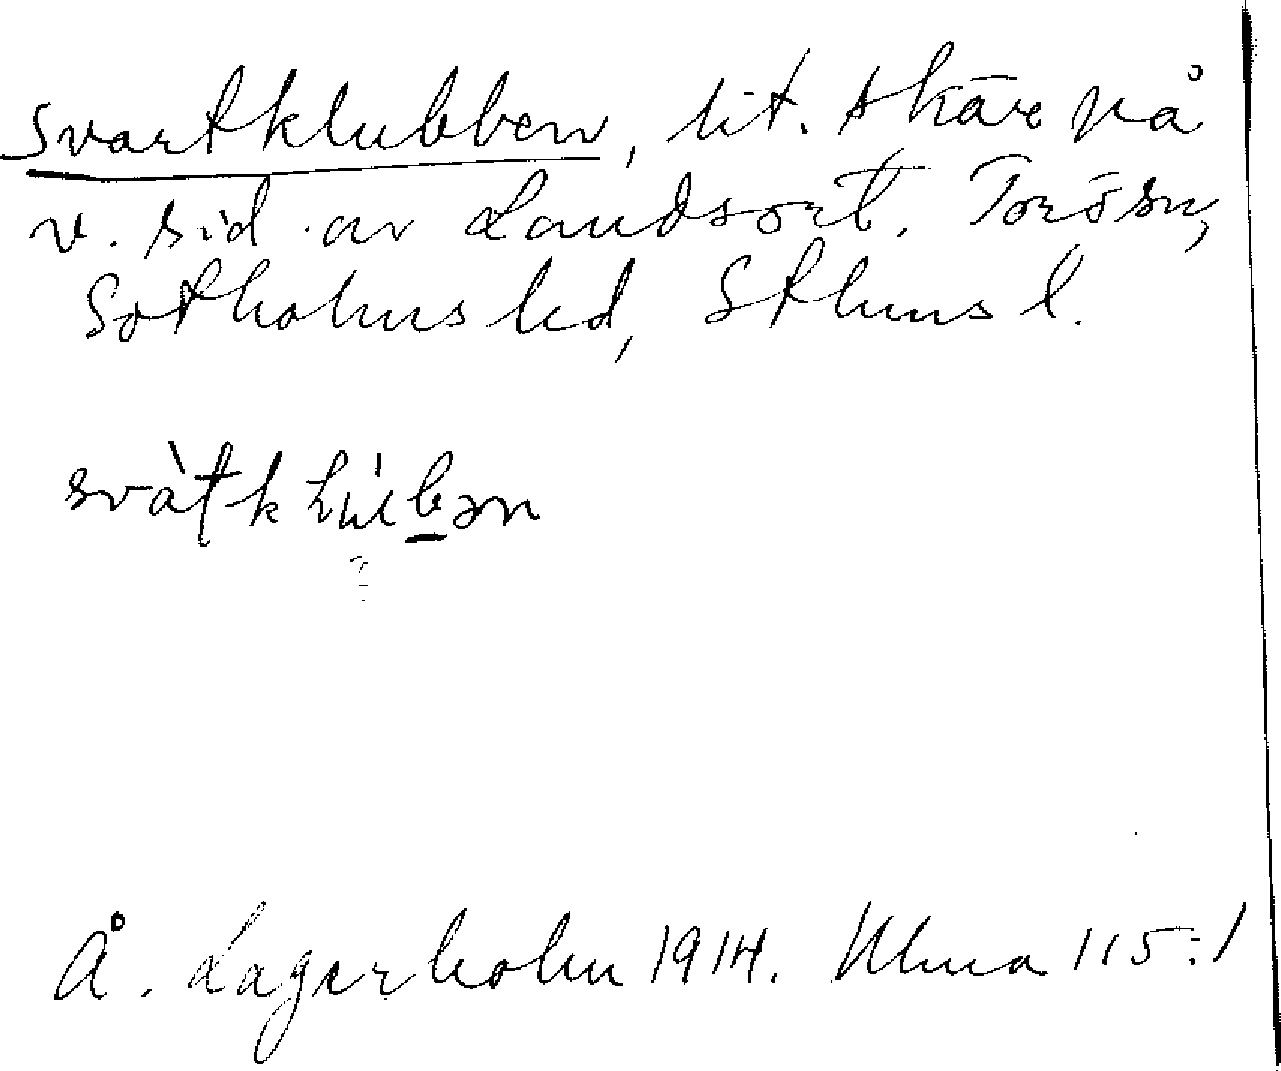 Svartklubben, lit. skär på
v. sid. av Landsort. Torö sn,
Sotholms hd, Sthms l.
Å. Lagerholm 1914. Ulma 115:1